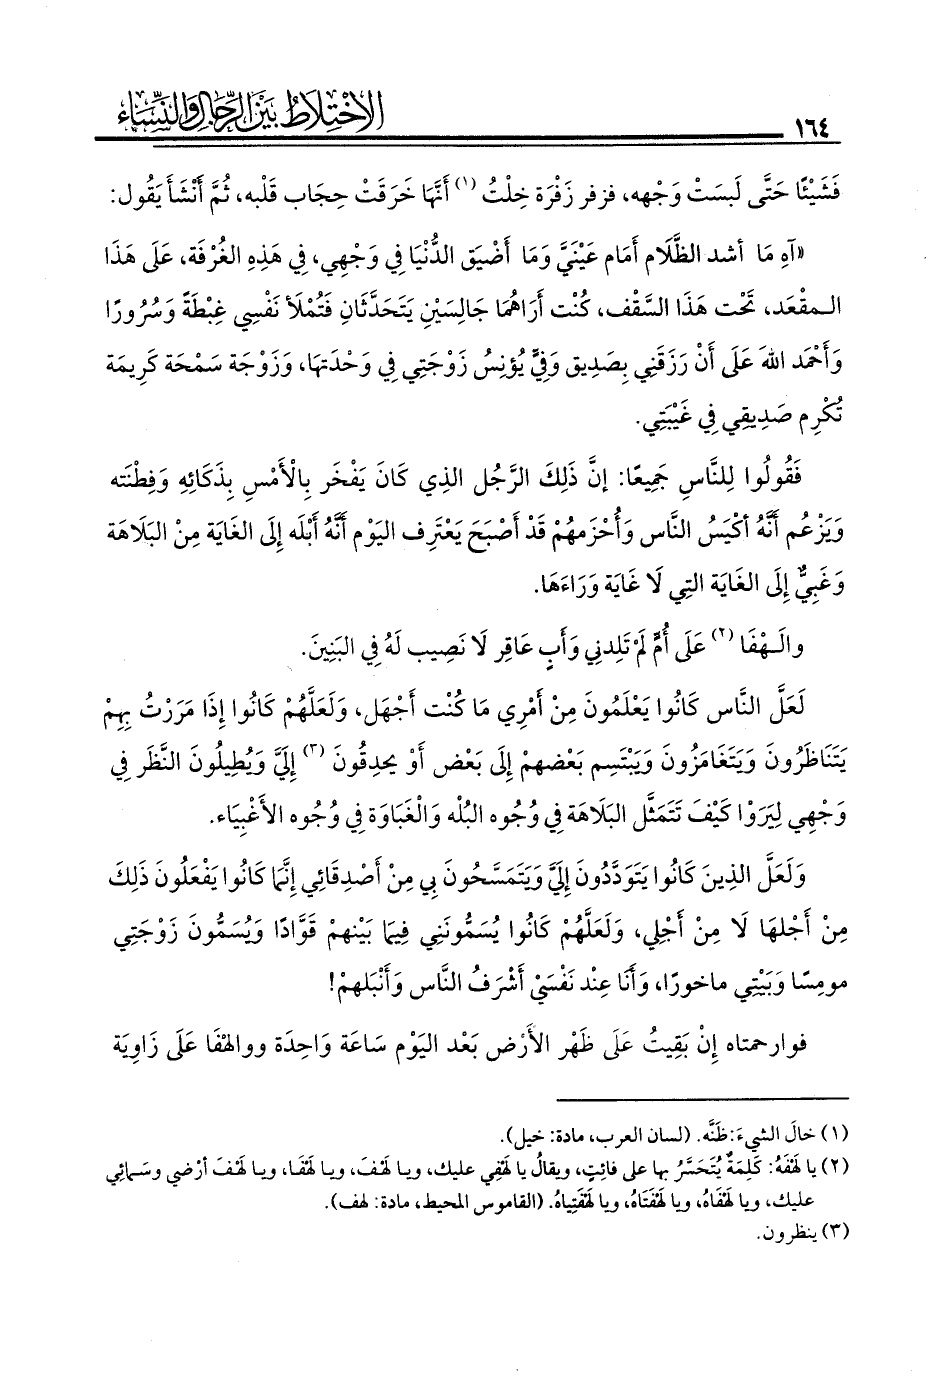 ١٦٤ الاختلاط بين الرجال والنساء
فَشَيْئًا حَتَّى لَبَسَتْ وَجْهه، فزفر زَفْرَة خِلْتُ (١) أَنَّهَا خَرَقَتْ حِجَاب قَلْبه، ثُمَّ أَنْشَأَ يَقُول:
«آهِ مَا أشد الظَّلَام أَمَام عَيْنَيَّ وَمَا أَضْيَق الدُّنْيَا فِي وَجْهِي، فِي هَذِهِ الغُرْفَة، عَلَى هَذَا
المقْعَد، تَحْت هَذَا السَّقْف، كُنْت أَرَاهُمَا جَالِسَيْنِ يَتَحَدَّثَانِ فَتُمْلَأ نَفْسِي غِبْطَةً وَسُرُورًا
وَأَحْمَد اللهَ عَلَى أَنْ رَزَقَنِي بِصَدِيق وَفِيٍّ يُؤْنِسُ زَوْجَتِي فِي وَحْدَتِهَا، وَزَوْجَة سَمْحَة كَرِيمَة
تُكْرِم صَدِيقِي فِي غَيْبَتِي.
فَقُولُوا لِلنَّاسِ جَمِيعًا: إنَّ ذَلِكَ الرَّجُل الذِي كَانَ يَفْخَر بِالْأَمْسِ بِذَكَائِهِ وَفِطْنَته
وَيَزْعُم أَنَّهُ أكْيَسُ النَّاس وَأَحْزَمهُمْ قَدْ أَصْبَحَ يَعْتَرِف اليَوْم أَنَّهُ أَبْلَه إِلَى الغَايَة مِنْ البَلَاهَة
وَغَبِيٌّ إِلَى الغَايَة التِي لَا غَايَة وَرَاءَهَا.
والَهْفَا (٢) عَلَى أُمٍّ لَمْ تَلِدنِي وَأَبٍ عَاقِر لَا نَصِيب لَهُ فِي البَنِينَ.
لَعَلَّ النَّاس كَانُوا يَعْلَمُونَ مِنْ أَمْرِي مَا كُنْت أَجْهَل، وَلَعَلَّهُمْ كَانُوا إِذَا مَرَرْتُ بِهِمْ
يَتَنَاظَرُونَ وَيَتَغَامَزُونَ وَيَبْتَسِم بَعْضهمْ إِلَى بَعْض أَوْ يحدِقُونَ (٣) إِلَيَّ وَيُطِيلُونَ النَّظَر فِي
وَجْهِي لِيَرَوْا كَيْفَ تَتَمَثَّل البَلَاهَة فِي وُجُوه البُلْه وَالْغَبَاوَة فِي وُجُوه الأَغْبِيَاء.
وَلَعَلَّ الذِينَ كَانُوا يَتَوَدَّدُونَ إِلَيَّ وَيَتَمَسَّحُونَ بِي مِنْ أَصْدِقَائِي إِنَّمَا كَانُوا يَفْعَلُونَ ذَلِكَ
مِنْ أَجْلهَا لَا مِنْ أَجْلِي، وَلَعَلَّهُمْ كَانُوا يُسَمُّونَنِي فِيمَا بَيْنهمْ قَوَّادًا وَيُسَمُّونَ زَوْجَتِي
مومِسًا وَبَيْتِي ماخورًا، وَأَنَا عِنْد نَفْسَيْ أَشْرَفُ النَّاس وَأَنْبَلهمْ!
فوارحمتاه إِنْ بَقِيتُ عَلَى ظَهْر الأَرْض بَعْد اليَوْم سَاعَة وَاحِدَة ووالهْفَا عَلَى زَاوِيَة
(١) خالَ الشيءَ: ظَنَّه. (لسان العرب، مادة: خيل).
(٢) يا لَهْفَهُ: كَلِمَةٌ يُتَحَسَّرُ بها على فائِتٍ، ويقالُ يا لَهْفِي عليك، ويا لَهْفَ، ويا لَهْفَا، ويا لَهْفَ أرْضي وسَمائي
عليك، ويا لَهْفَاهُ، ويا لَهْفَتَاهُ، ويا لَهْفَتِياهُ. (القاموس المحيط، مادة: لهف).
(٣) ينظرون.